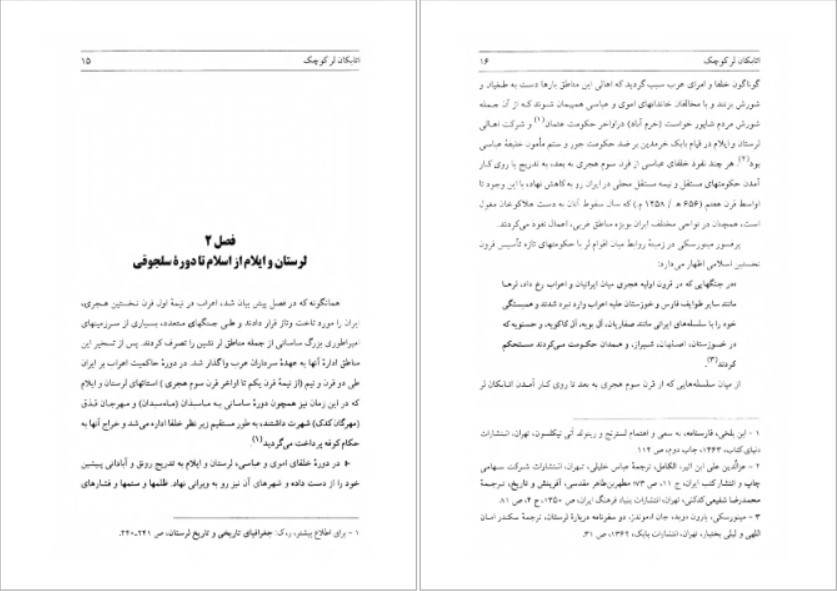 ۱۵ اتابکان لر کوچک
فصل ۲
لرستان و ایلام از اسلام تا دورهٔ سلجوقی
همانگونه که در فصل پیش بیان شد، اعراب در نیمهٔ اول قرن نخستین هجری،
ایران را مورد تاخت وتاز قرار دادند و طی جنگهای متعدد، بسیاری از سرزمینهای
امپراطوری بزرگ ساسانی از جمله مناطق لر نشین را تصرف کردند. پس از تسخیر این
مناطق ادارهٔ آنها به عهدهٔ سرداران عرب واگذار شد. در دورهٔ حاکمیت اعراب بر ایران
طی دو قرن و نیم (از نیمهٔ قرن یکم تا اواخر قرن سوم هجری) استانهای لرستان و ایلام
که در این زمان نیز همچون دورهٔ ساسانی به ماسبذان (ماه‌سبدان) و مهرجان قذق
(مهرگان کدک) شهرت داشتند، به طور مستقیم زیر نظر خلفا اداره می‌شد و خراج آنها به
حکام کوفه پرداخت می‌گردید(۱).
در دورهٔ خلفای اموی و عباسی، لرستان و ایلام به تدریج رونق و آبادانی پیشین
خود را از دست داده و شهرهای آن نیز رو به ویرانی نهاد. ظلمها و ستمها و فشارهای
۱ - برای اطلاع بیشتر، ر.ک: جغرافیای تاریخی و تاریخ لرستان، ص ۲۴۱-۲۴۰.
۱۶ اتابکان لر کوچک
گوناگون خلفا و امرای عرب سبب گردید که اهالی این مناطق بارها دست به طغیان و
شورش بزنند و با مخالفان خاندانهای اموی و عباسی همپیمان شوند که از آن جمله
شورش مردم شاپور خواست (خرم آباد) دراواخر حکومت عثمان(۱) و شرکت اهالی
لرستان و ایلام در قیام بابک خرمدین بر ضد حکومت جور و ستم مأمون خلیفهٔ عباسی
بود(۲). هر چند نفوذ خلفای عباسی از قرن سوم هجری به بعد، به تدریج با روی کار
آمدن حکومتهای مستقل و نیمه مستقل محلی در ایران رو به کاهش نهاد، با این وجود تا
اواسط قرن هفتم (۶۵۶ ه / ۱۲۵۸ م) که سال سقوط آنان به دست هلاکوخان مغول
است، همچنان در نواحی مختلف ایران بویژه مناطق غربی، اعمال نفوذ می‌کردند.
پرفسور مینورسکی در زمینهٔ روابط میان اقوام لر با حکومتهای تازه تأسیس قرون
نخستین اسلامی اظهار می‌دارد:
«در جنگهایی که در قرون اولیه هجری میان ایرانیان و اعراب رخ داد، لرها
مانند سایر طوایف فارس و خوزستان علیه اعراب وارد نبرد شدند و همبستگی
خود را با سلسله‌های ایرانی مانند صفاریان، آل بویه، آل کاکویه، و حسنویه که
در خوزستان، اصفهان، شیراز، و همدان حکومت می‌کردند مستحکم
کردند»(۳).
از میان سلسله‌هایی که از قرن سوم هجری به بعد تا روی کار آمدن اتابکان لر
۱ - ابن بلخی، فارسنامه، به سعی و اهتمام لسترنج و رینولد آلن نیکلسون، تهران، انتشارات
دنیای کتاب، ۱۳۶۳، چاپ دوم، ص ۱۱۴.
۲ - عزالدین علی ابن اثیر، الکامل، ترجمهٔ عباس خلیلی، تهران، انتشارات شرکت سهامی
چاپ و انتشار کتب ایران، ج ۱۱، ص ۷۳؛ مطهربن‌طاهر مقدسی، آفرینش و تاریخ، ترجمهٔ
محمدرضا شفیعی‌کدکنی، تهران، انتشارات بنیاد فرهنگ ایران، ۱۳۵۰، ج ۴، ص ۸۱.
۳ - مینورسکی، بارون دوبد، جان ادموندز، دو سفرنامه دربارهٔ لرستان، ترجمهٔ سکندر امان
اللهی و لیلی بختیار، تهران، انتشارات بابک، ۱۳۶۲، ص ۳۱.